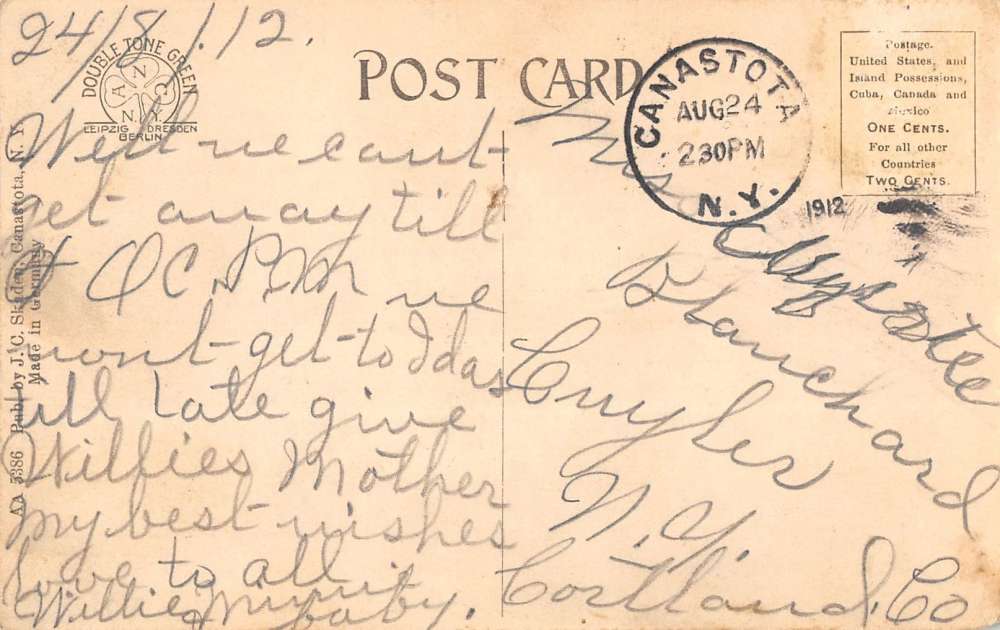 24/8/12.
DOUBLE TONE GREEN
A N C
N.Y.
LEIPZIG DRESDEN
BERLIN
POST CARD
CANASTOTA
AUG 24
230PM
N.Y.
1912
Postage.
United States, and
Island Possessions,
Cuba, Canada and
Mexico
ONE CENTS.
For all other
Countries
TWO CENTS.
AA 5386 Publ. by J. C. Skaden, Canastota, N. Y.
Made in Germany
Well we cant
get away till
OC P.M we
wont get to Idas
till Late give
Willies Mother
my best wishes
Love to all
Willie baby.
Mrs
Blanchard
Cuyler
N.Y.
Cortland, Co